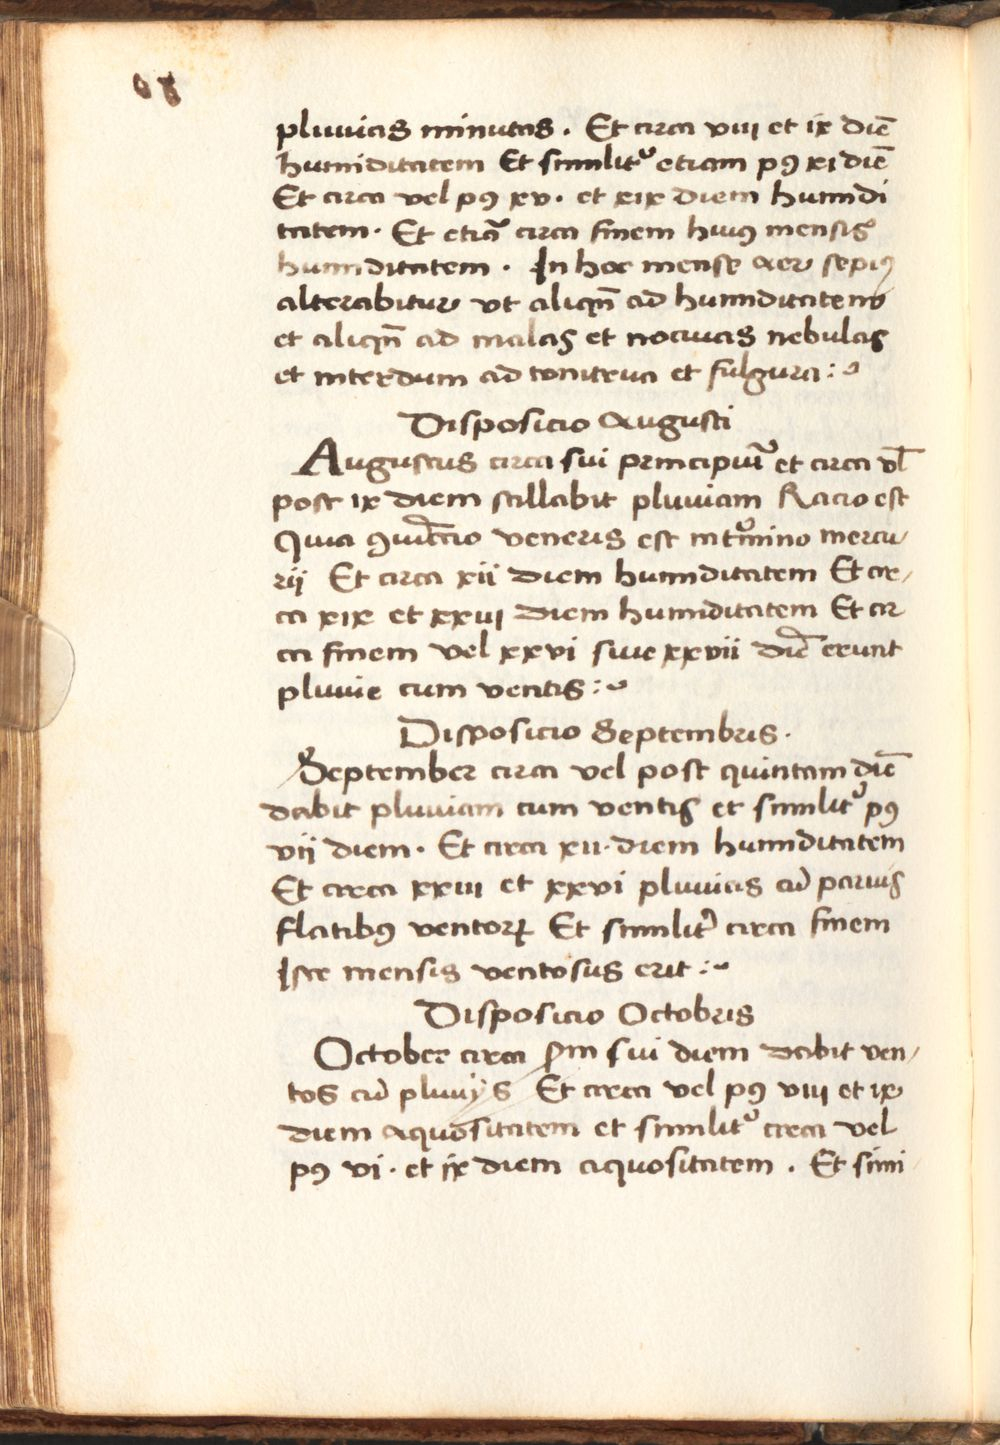 68
pluuias minutas. Et circa viii et ix diē
humiditatem Et similitᵘ etiam pꝰ xi diē
Et circa vel pꝰ xv. et xix diem humidi
tatem. Et etiā circa finem huiꝰ mensis
humiditatem. In hoc mense aer sepiꝰ
alterabitur vt aliqn̄ ad humiditatem
et aliqn̄ ad malas et nociuas nebulas
et interdum ad tonitrua et fulgura :~
Disposicio Augusti
Augustus circa sui principiū et circa vl̄
post ix diem stillabit pluuiam Racio est
Quia est mercu/
rij Et circa xii diem humiditatem Et cir/
ca xix et xxiii diem humiditatem Et cir
ca finem vel xxvi siue xxvii diē erunt
pluuie cum ventis :~
Disposicio Septembris.
September circa vel post quintam diē
dabit pluuiam cum ventis et similitᵘ pꝰ
vii diem. Et circa xii. diem humiditatem
Et circa xxiii et xxvi pluuias cū paruis
flatibꝰ ventoꝝ Et similit circa finem
Iste mensis ventosus erit :~
Disposicio Octobris
October circa sui diem dabit ven/
tos cū pluuijs Et circa vel pꝰ viii et ix
diem aquositatem et similitᵘ circa vel
pꝰ vi. et ix diem aquositatem. Et simi/